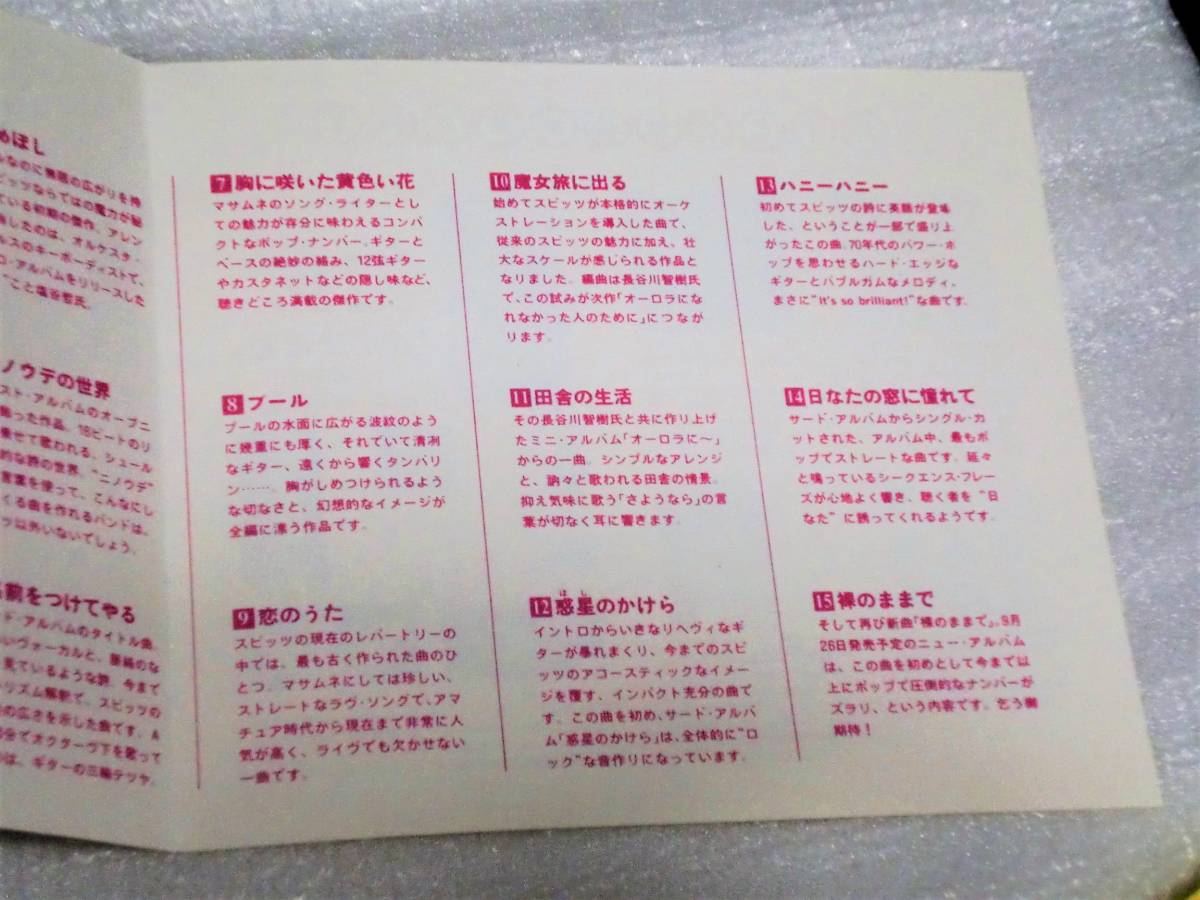 めぼし
なのに無限の広がりを持
ピッツならではの魔力が秘
ている初期の傑作。アレン
したのは、オルケスタ・
ルスのキーボーディストで、
ロ・アルバムをリリースした
こと塩谷哲氏。
ノウテの世界
スト・アルバムのオープニ
飾った作品。16ビートのリ
乗せて歌われる、シュール
的な詩の世界。“ニノウデ”
言葉を使って、こんなにし
くる曲を作れるバンドは、
ッツ以外いないでしょう。
名前をつけてやる
ド・アルバムのタイトル曲。
いヴォーカルと、
見ているような詩。今まで
リズム解釈で、スピッツの
の広さを示した曲です。A
部分でオクターヴ下を歌って
は、ギターの三輪テツヤ。
7 胸に咲いた黄色い花
マサムネのソング・ライターとし
ての魅力が存分に味わえるコンパ
クトなポップ・ナンバー。ギターと
ベースの絶妙の絡み、12弦ギター
やカスタネットなどの隠し味など、
聴きどころ満載の傑作です。
8 プール
プールの水面に広がる波紋のよう
に幾重にも厚く、それでいて清冽
なギター、遠くから響くタンバリ
ン……。胸がしめつけられるよう
な切なさと、幻想的なイメージが
全編に漂う作品です。
9 恋のうた
スピッツの現在のレパートリーの
中では、最も古く作られた曲のひ
とつ。マサムネにしては珍しい、
ストレートなラヴ・ソングで、アマ
チュア時代から現在まで非常に人
気が高く、ライヴでも欠かせない
一曲です。
10 魔女旅に出る
始めてスピッツが本格的にオーケ
ストレーションを導入した曲で、
従来のスピッツの魅力に加え、壮
大なスケールが感じられる作品と
なりました。編曲は長谷川智樹氏
で、この試みが次作「オーロラにな
れなかった人のために」につなが
ります。
11 田舎の生活
その長谷川智樹氏と共に作り上げ
たミニ・アルバム「オーロラに〜」
からの一曲。シンプルなアレンジ
と、訥々と歌われる田舎の情景。
抑え気味に歌う「さようなら」の言
葉が切なく耳に響きます。
はし
12 惑星のかけら
イントロからいきなりヘヴィなギ
ターが暴れまくり、今までのスピ
ッツのアコースティックなイメー
ジを覆す、インパクト充分の曲で
す。この曲を初め、サード・アルバ
ム「惑星のかけら」は、全体的に“ロ
ック”な音作りになっています。
13 ハニーハニー
初めてスピッツの詩に英語が登場
した、ということが一部で盛り上
がったこの曲。70年代のパワー・ポ
ップを思わせるハード・エッジな
ギターとバブルガムなメロディ、
まさに“It's so brilliant!”な曲です。
14 日なたの窓に憧れて
サード・アルバムからシングル・カ
ットされた、アルバム中、最もポ
ップでストレートな曲です。延々
と鳴っているシークエンス・フレー
ズが心地よく響き、聴く者を“日
なた”に誘ってくれるようです。
15 裸のままで
そして再び新曲「裸のままで」。9月
26日発売予定のニュー・アルバム
は、この曲を初めとして今まで以
上にポップで圧倒的なナンバーが
ズラリ、という内容です。乞う御
期待！